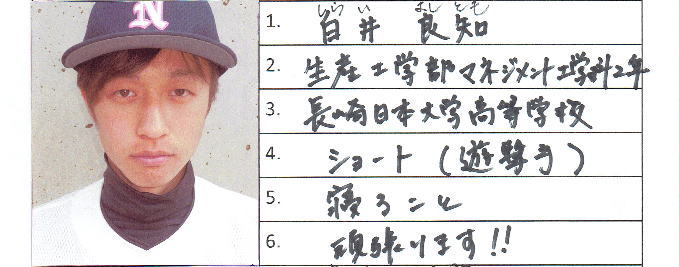 N
しらい よしとも
1. 白井 良知
2. 生産工学部マネジメント工学科2年
3. 長崎日本大学高等学校
4. ショート(遊撃手)
5. 寝ること
6. 頑張ります!!